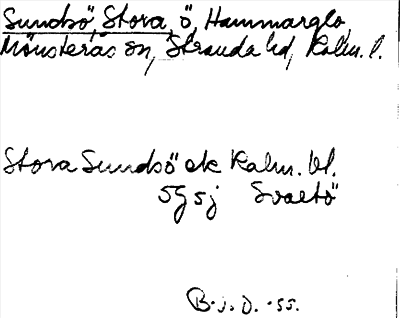 Sundsö, Stora, ö, Hammarglo,
Mönsterås sn, Stranda hd, Kalm. l.
Stora Sundsö ek Kalm. bl.
5G5j Svartö
B.J.D. -55.